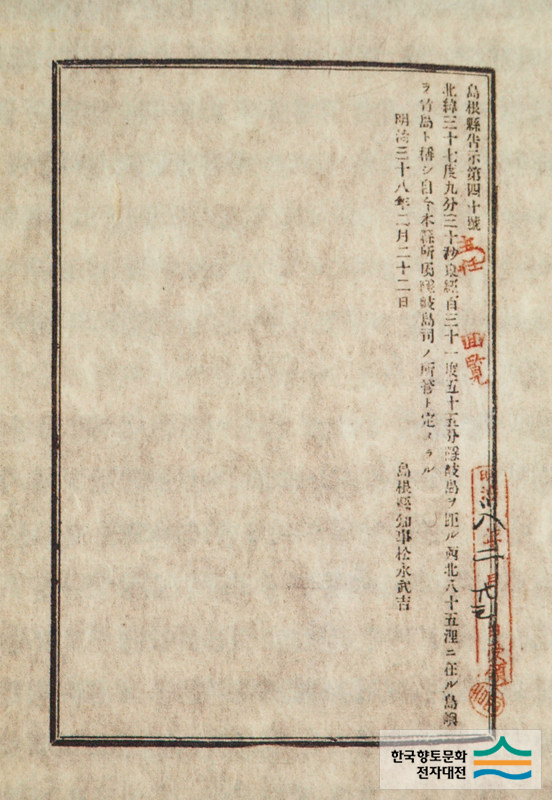 島根縣告示第四十號
北緯三十七度九分三十秒東經百三十一度五十五分隱岐島ヲ距ル西北八十五浬ニ在ル島嶼
ヲ竹島ト稱シ自今本縣所屬隱岐島司ノ所管ト定メラル
明治三十八年二月二十二日
島根縣知事松永武吉
主任
回覧
明治
八
二
한국향토문화
전자대전